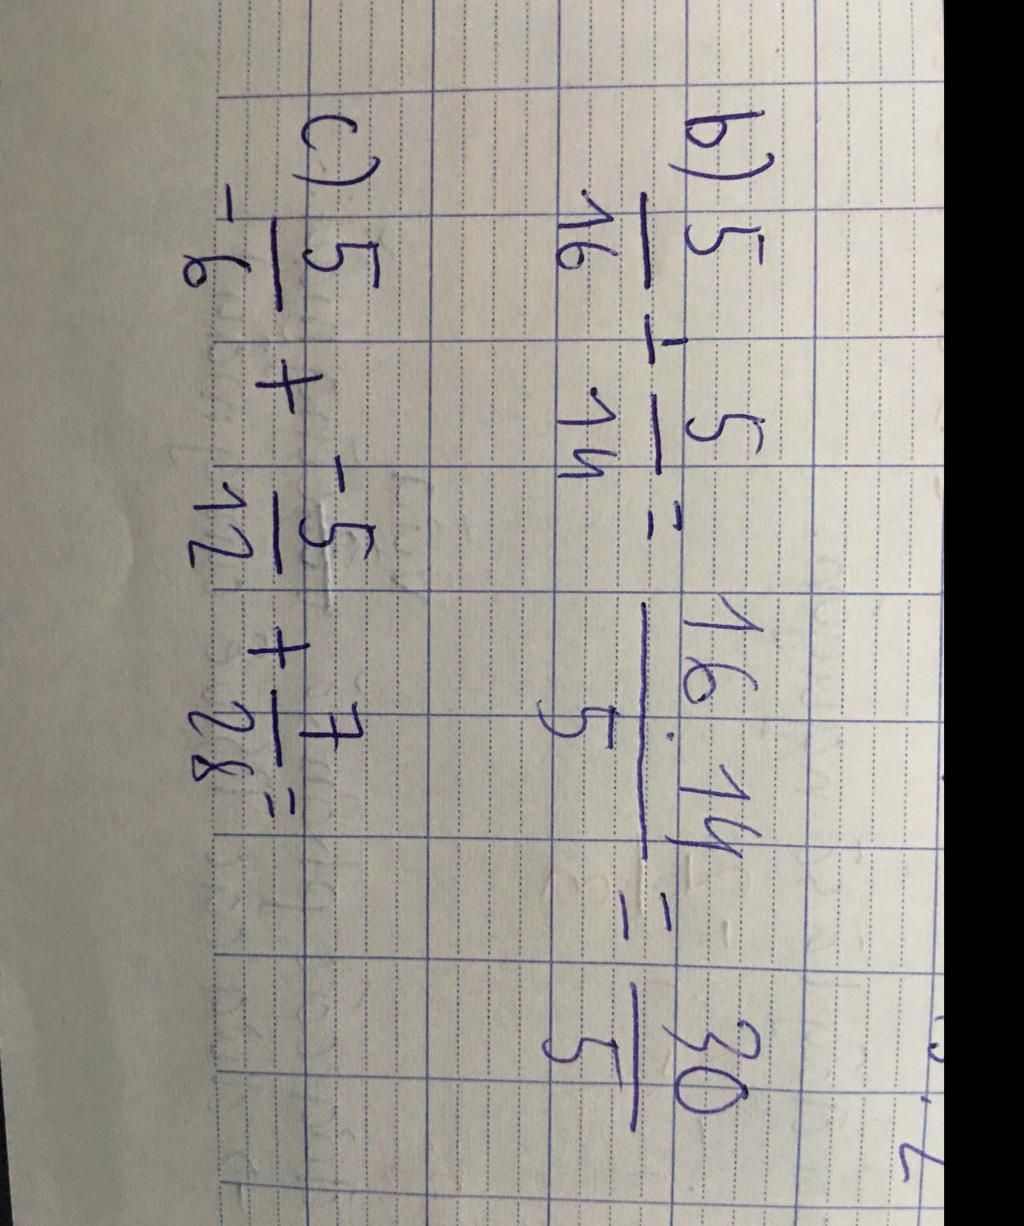 b) 5/16 + 5/14 = 16.14/5 = 30/5
c) 5/-6 + -5/12 + 7/28 =